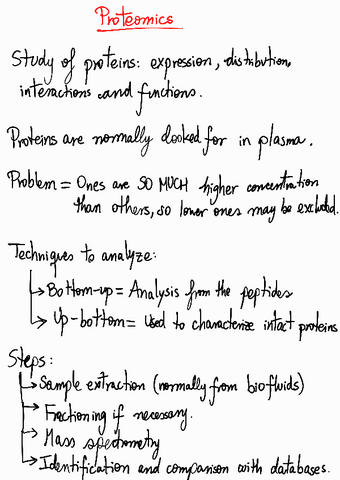 Proteomics
Study of proteins: expression, distribution,
interactions and functions.
Proteins are normally looked for in plasma.
Problem = Ones are SO MUCH higher concentration
than others, so lower ones may be excluded.
Techniques to analyze:
↳ Bottom-up = Analysis from the peptides
↳ Up-bottom = Used to characterize intact proteins
Steps:
↳ Sample extraction (normally from biofluids)
→ Fractioning if necessary.
→ Mass spectrometry
↳ Identification and comparison with databases.